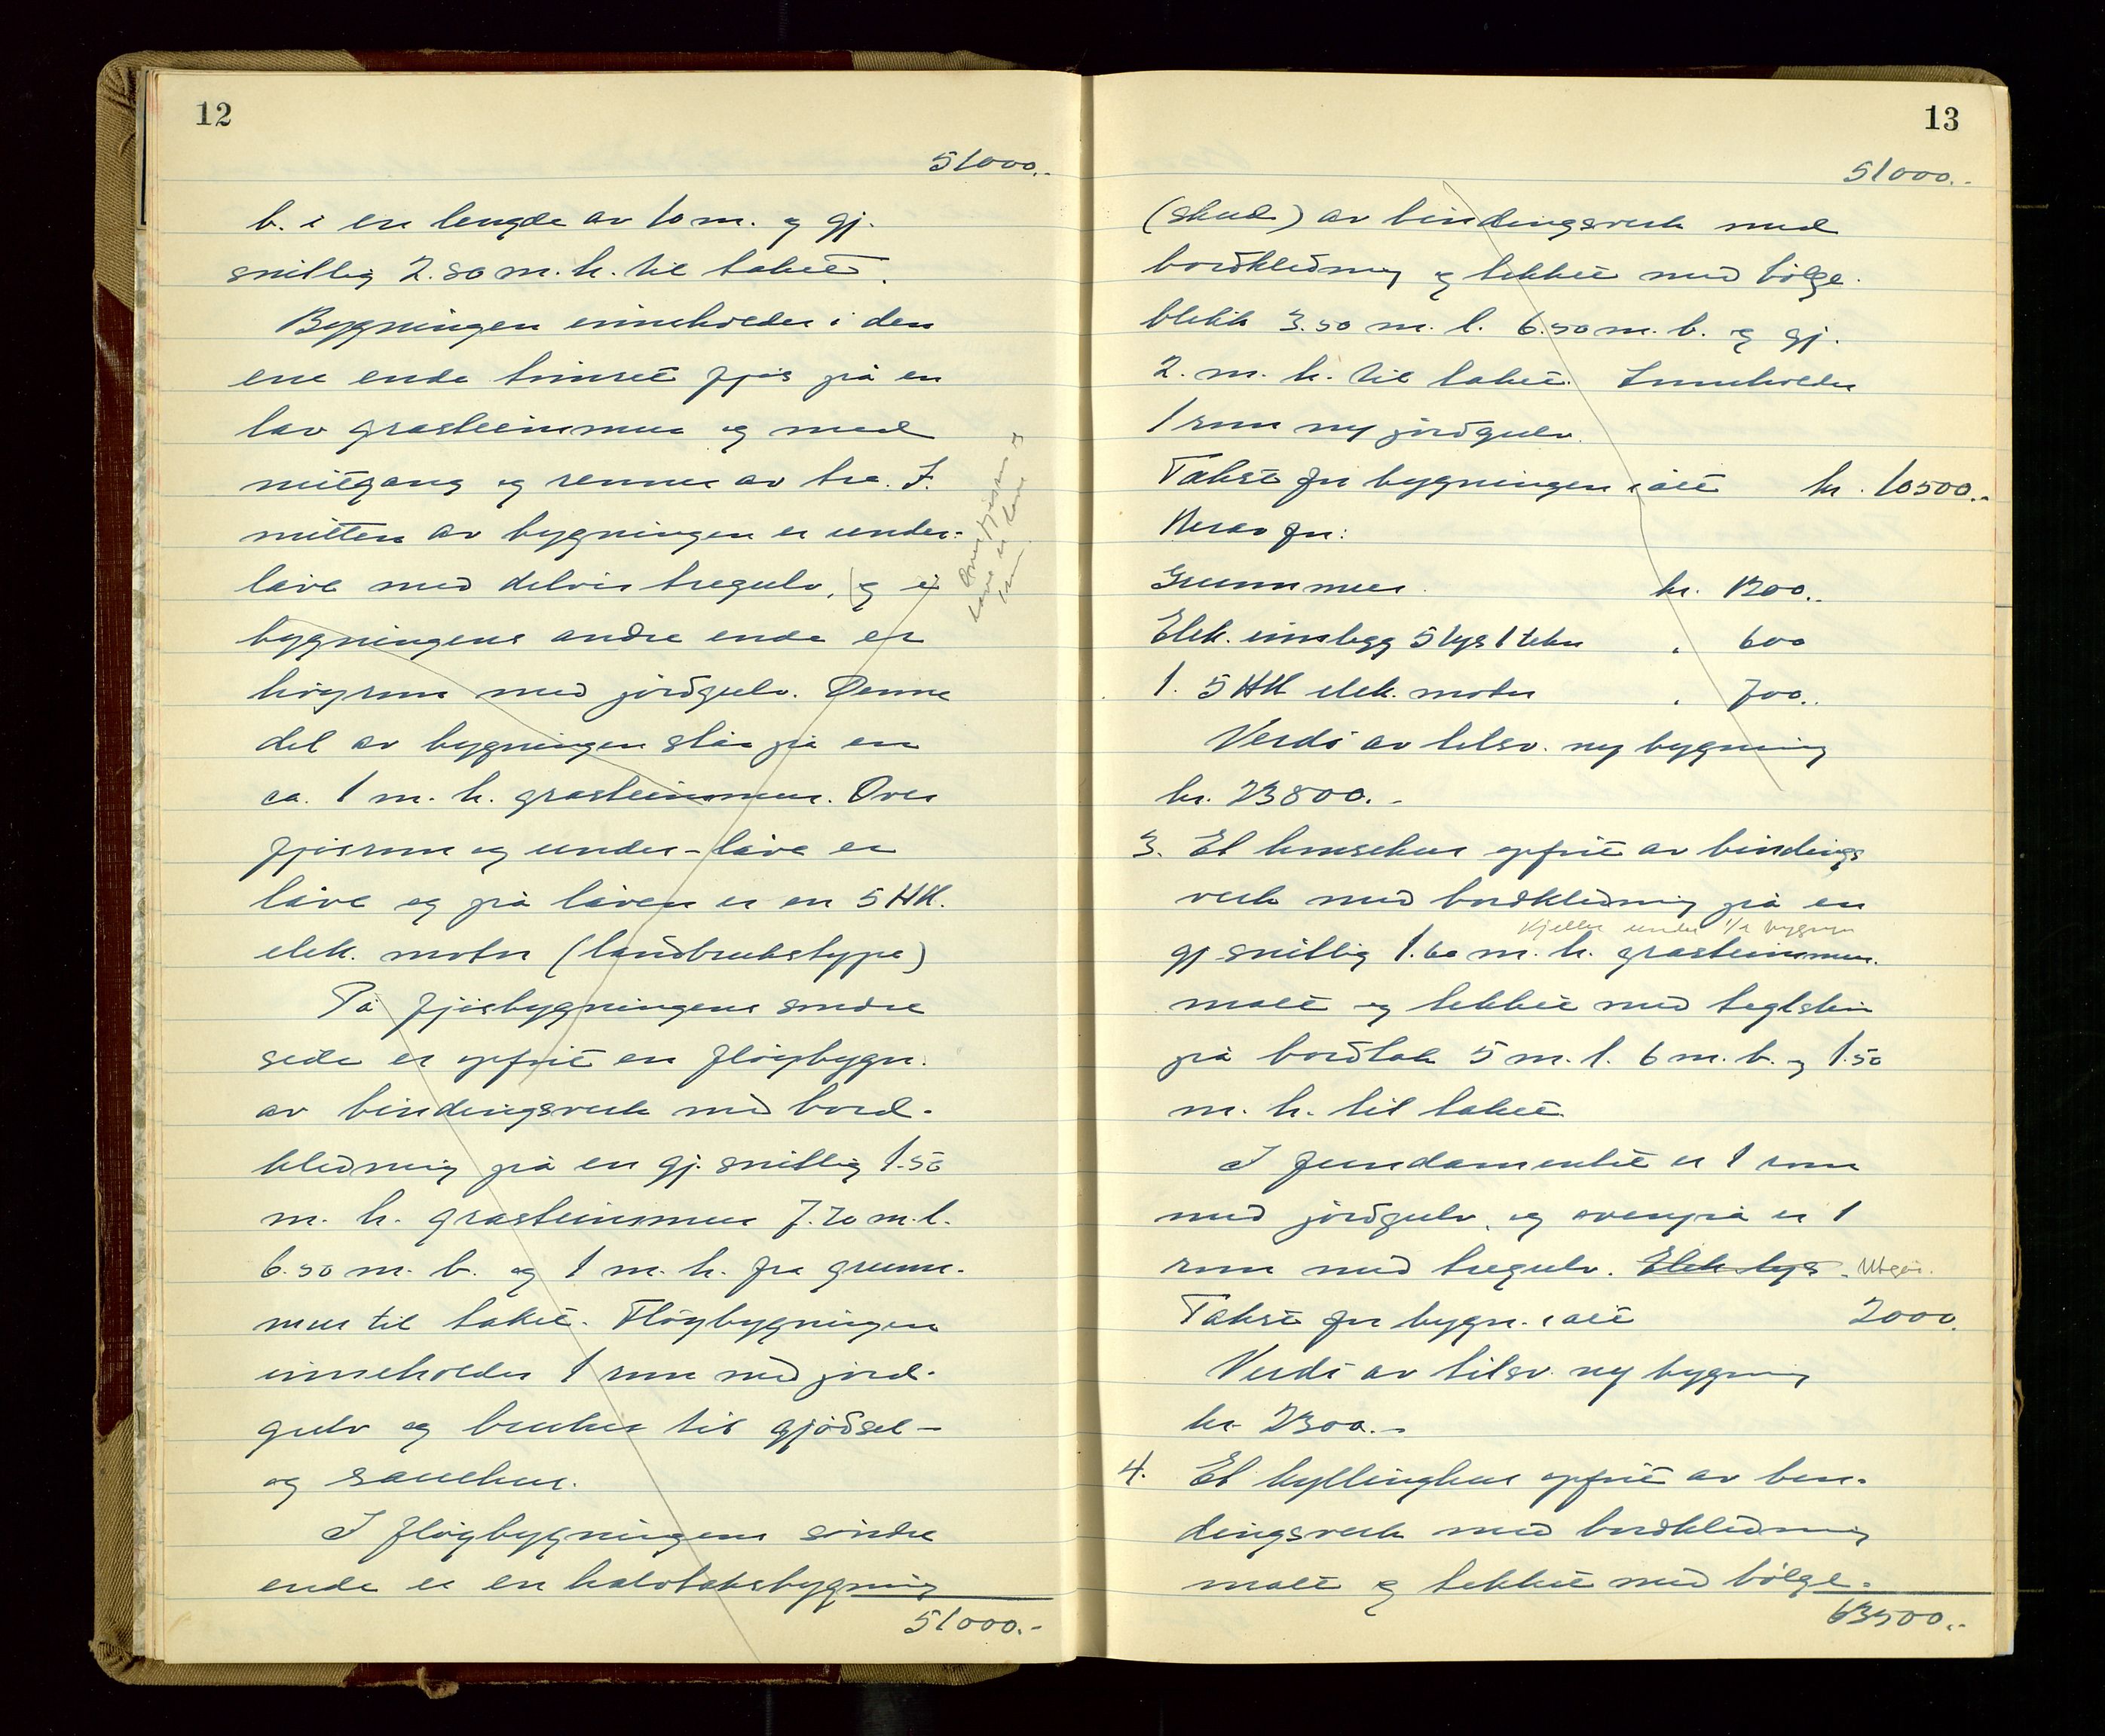 12
51000.-
b. i en lengde av 10 m. og gj.
snittlig 2.80 m. h. til taket.
Bygningen inneholder i den
ene ende timret fjøs på en
lav grasteinsmur og med
mitgang og renner av tre. I
mitten av bygningen er under-
låve med delvis tregulv, (og i
bygningens andre ende er
høyrum med jordgulv. Denne
del av bygningen står på en
ca. 1 m. h. grasteinsmur. Over
fjøsrum og under-låve er
låve og på låven er en 5 HK.
elek. motor (landbrukstype)
På fjøsbygningens søndre
side er opført en fløybygn.
av bindingsverk med bord-
kledning på en gj. snittlig 1.50
m. h. grasteinsmur 7.20 m. l.
6.50 m. b. og 1 m. h. fra grunn-
mur til taket. Fløybygningen
inneholder 1 rum med jord-
gulv og brukes til gjødsel-
og sauehus.
I fløybygningens søndre
ende er en halvtaksbygning
51000.-
Over fjøset og
låve er låve
1 rum
13
51000.-
(skul) av bindingsverk med
bordkledning og tekket med bølge-
blikk 3.50 m. l. 6.50 m. b. og gj.
2. m. h. til taket. Inneholder
1 rum m/ jordgulv.
Takst for bygningen i alt kr. 10500.-
Herav for:
Grunnmur kr. 1200.-
Elek. innlegg 5 lys 1 tekn " 600
1. 5 HK elek. motor " 700.-
Verdi av tilsv. ny bygning
kr. 23800.-
3. Et hønsehus opført av bindings
verk med bordkledning på en
Kjeller under 1/2 bygngn
gj. snittlig 1.60 m. h. grasteinsmur.
malt og tekket med teglstein
på bordtak 5 m. l. 6 m. b. og 1.50
m. h. til taket.
I fundamentet er 1 rum
med jordgulv, og ovenpå er 1
rum med tregulv. Elek. lys. Utgår.
Takst for bygn. i alt 2000.
Verdi av tilsv. ny bygning
kr. 2300.-
4. Et kyllinghus opført av bin-
dingsverk med bordkledning
malt og tekket med bølge-
63500.-